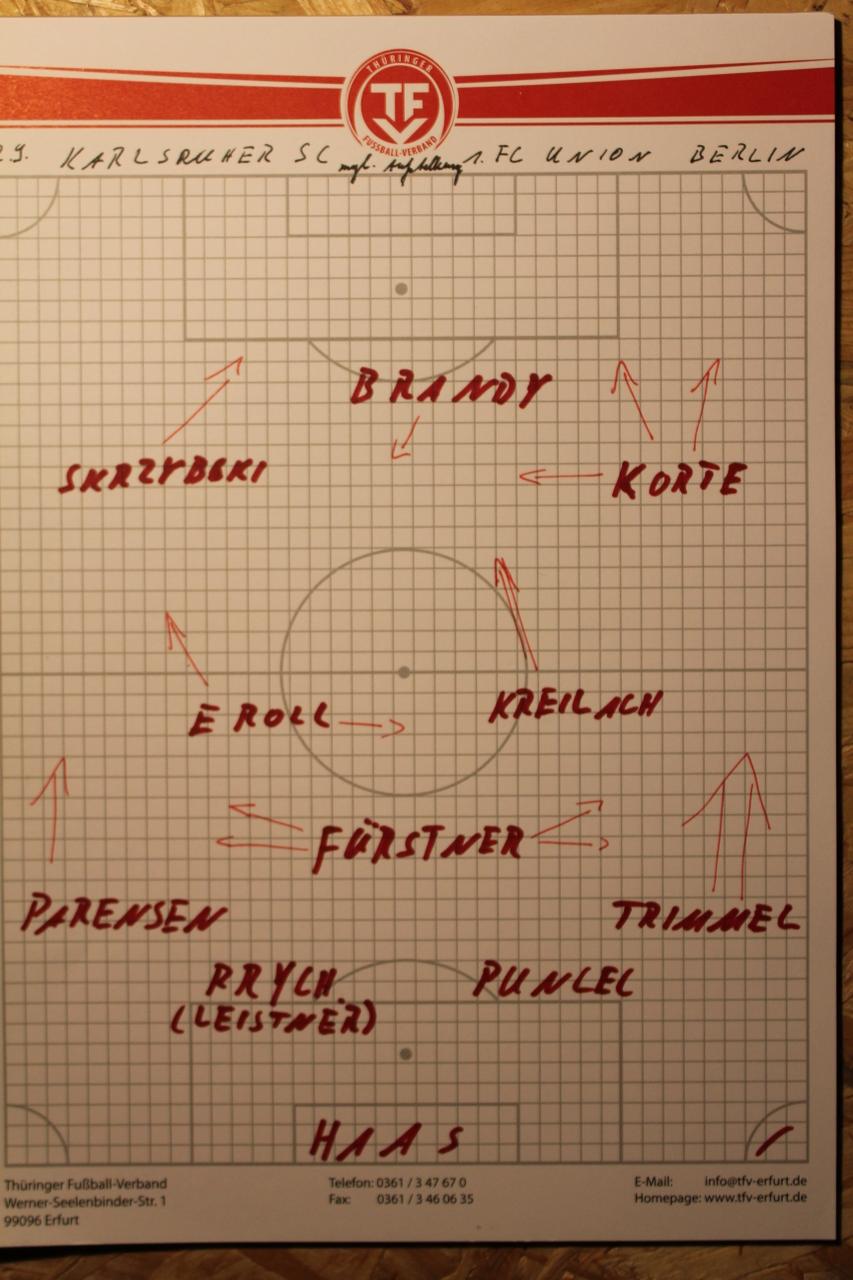 THÜRINGER
TFV
FUSSBALL-VERBAND
29. KARLSRUHER SC mgl. Aufstellung 1. FC UNION BERLIN
BRANDY
SKRZYBSKI
KORTE
EROLL
KREILACH
FÜRSTNER
PARENSEN
TRIMMEL
PUNCEC
(LEISTNER)
HAAS
Thüringer Fußball-Verband
Werner-Seelenbinder-Str. 1
99096 Erfurt
Telefon: 0361 / 3 47 67 0
Fax: 0361 / 3 46 06 35
E-Mail: info@tfv-erfurt.de
Homepage: www.tfv-erfurt.de